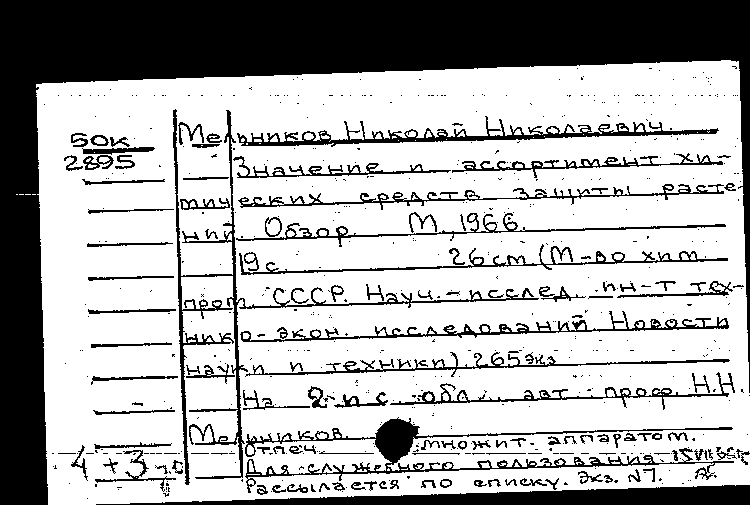 50к
2895
Мельников, Николай Николаевич.
Значение и ассортимент хи-
мических средств защиты расте-
ний. Обзор. М., 1966.
19 с. 26 см (М-во хим.
пром. СССР. Науч.-исслед. ин-т тех-
нико-экон. исследований. Новости
науки и техники). 265 экз.
На 2-й с. обл. авт.: проф. Н.Н.
Мельников.
Отпеч. множит. аппаратом.
Для служебного пользования.
Рассылается по списку. Экз. N7.
4+3